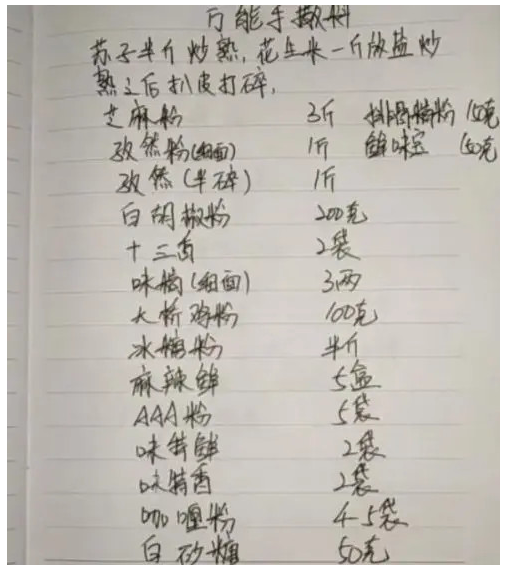 万能手撒料
苏子半斤炒熟,花生米一斤放盐炒
熟之后扒皮打碎,
芝麻粉 3斤 排骨精粉 150克
孜然粉(细面) 1斤 鲜味宝 150克
孜然(半碎) 1斤
白胡椒粉 200克
十三香 2袋
味精(细面) 3两
大桥鸡粉 100克
冰糖粉 半斤
麻辣鲜 5盒
AAA粉 5袋
味特鲜 2袋
味特香 2袋
咖喱粉 4-5袋
白砂糖 50克